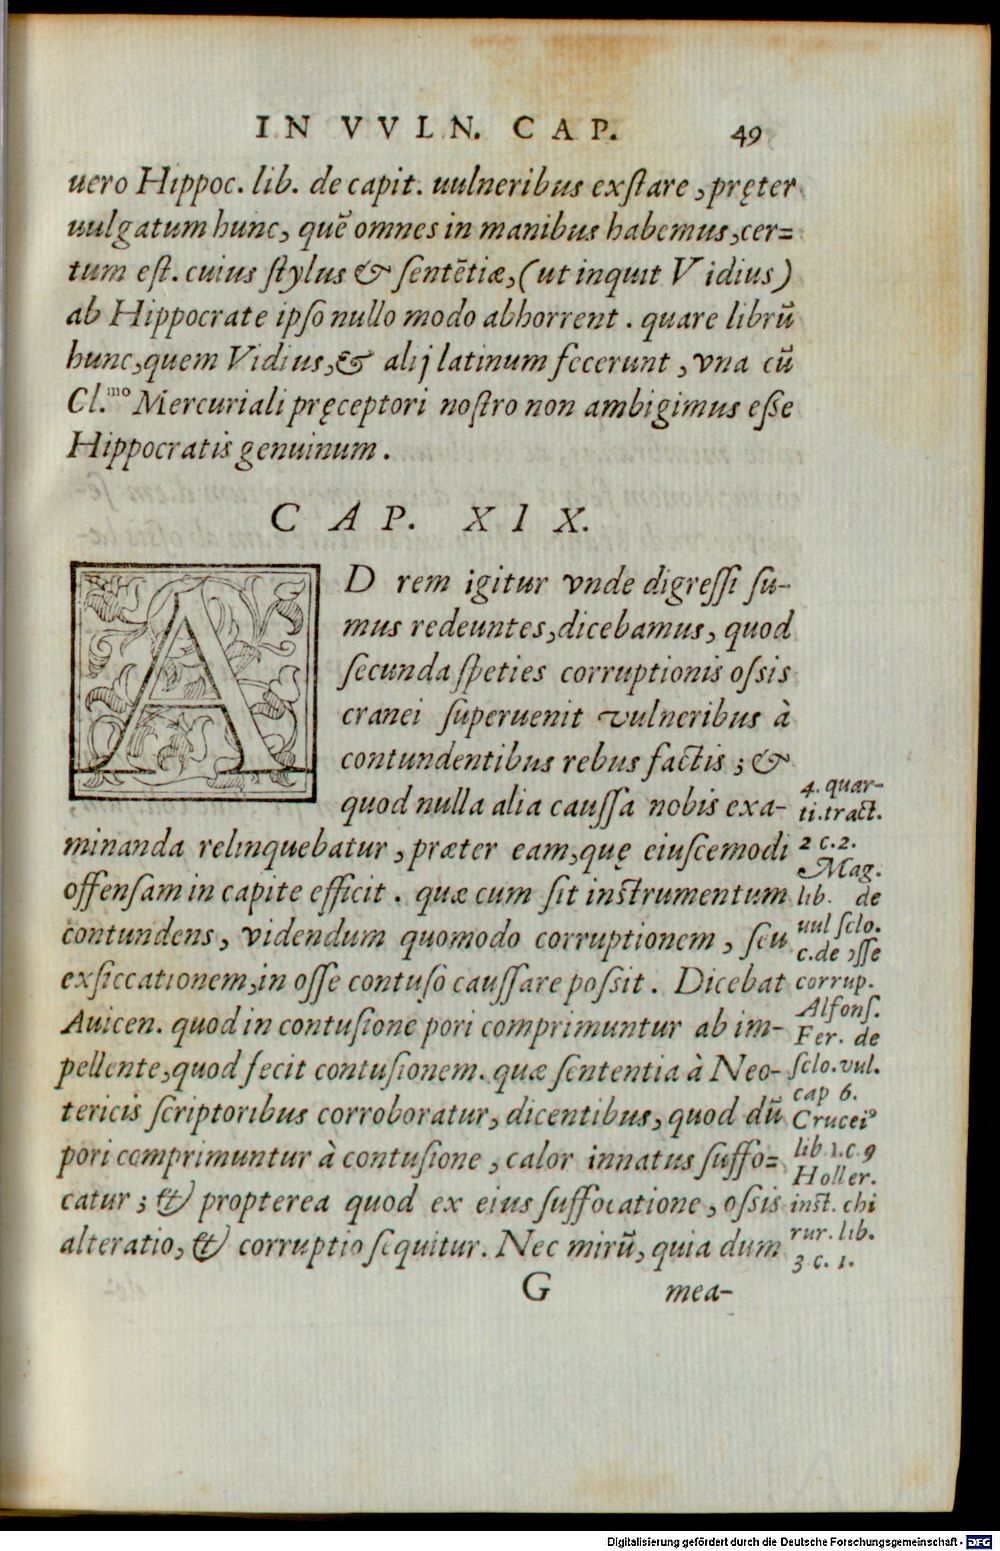 IN VVLN. CAP. 49
uero Hippoc. lib. de capit. uulneribus exſtare, pręter
uulgatum hunc, quē omnes in manibus habemus, cer=
tum eſt. cuius ſtylus & ſentētiæ, (ut inquit Vidius)
ab Hippocrate ipſo nullo modo abhorrent. quare librū
hunc, quem Vidius, & alij latinum fecerunt, vna cū
Cl.mo Mercuriali pręceptori noſtro non ambigimus eſſe
Hippocratis genuinum.
CAP. XIX.
AD rem igitur vnde digreſſi ſu-
mus redeuntes, dicebamus, quod
ſecunda ſpeties corruptionis oſsis
cranei ſuperuenit vulneribus à
contundentibus rebus factis; &
quod nulla alia cauſſa nobis exa-
minanda relinquebatur, præter eam, quę eiuſcemodi
offenſam in capite efficit. quæ cum ſit inſtrumentum
contundens, videndum quomodo corruptionem, ſeu
exſiccationem, in oſſe contuſo cauſſare poſsit. Dicebat
Auicen. quod in contuſione pori comprimuntur ab im-
pellente, quod fecit contuſionem. quæ ſententia à Neo-
tericis ſcriptoribus corroboratur, dicentibus, quod dū
pori comprimuntur à contuſione, calor innatus ſuffo=
catur; & propterea quod ex eius ſuffocatione, oſsis
alteratio, & corruptio ſequitur. Nec mirū, quia dum
G mea-
4. quar-
ti. tract.
2 c. 2.
Mag.
lib. de
uul ſclo.
c. de oſſe
corrup.
Alfonſ.
Fer. de
ſclo. vul.
cap 6.
Cruceiꝰ
lib. 1. c. 9
Holler.
inſt. chi
rur. lib.
3 c. 1.
Digitalisierung gefördert durch die Deutsche Forschungsgemeinschaft - DFG